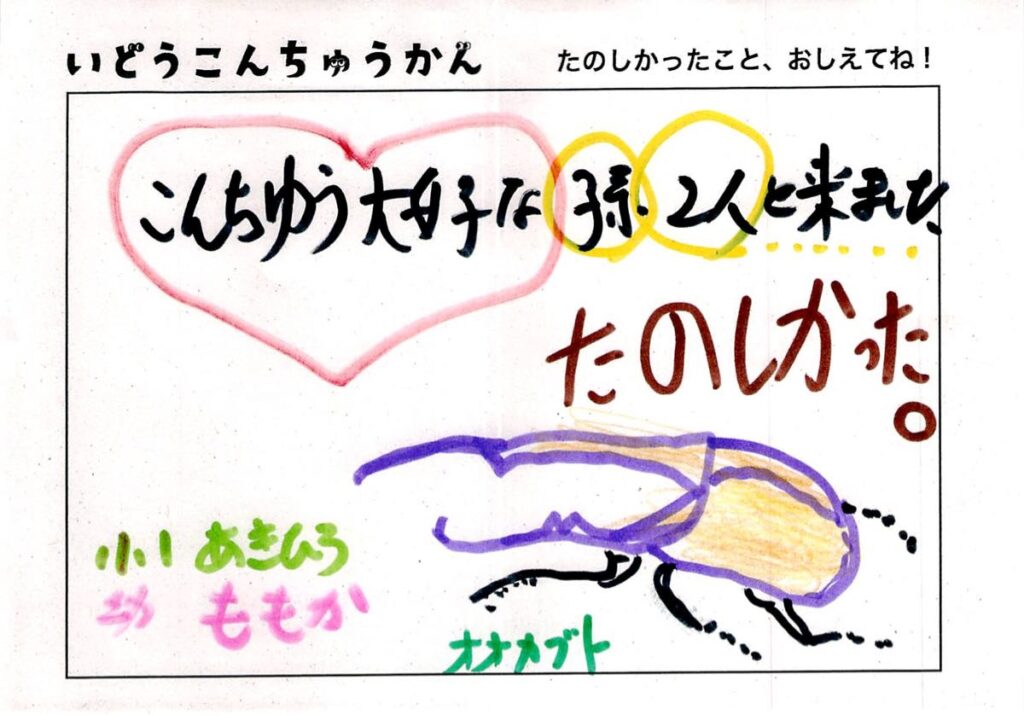 いどうこんちゅうかん
たのしかったこと、おしえてね！
こんちゅう大好きな孫2人と来ました
たのしかった。
小1 あきひろ
ももか
オオカブト